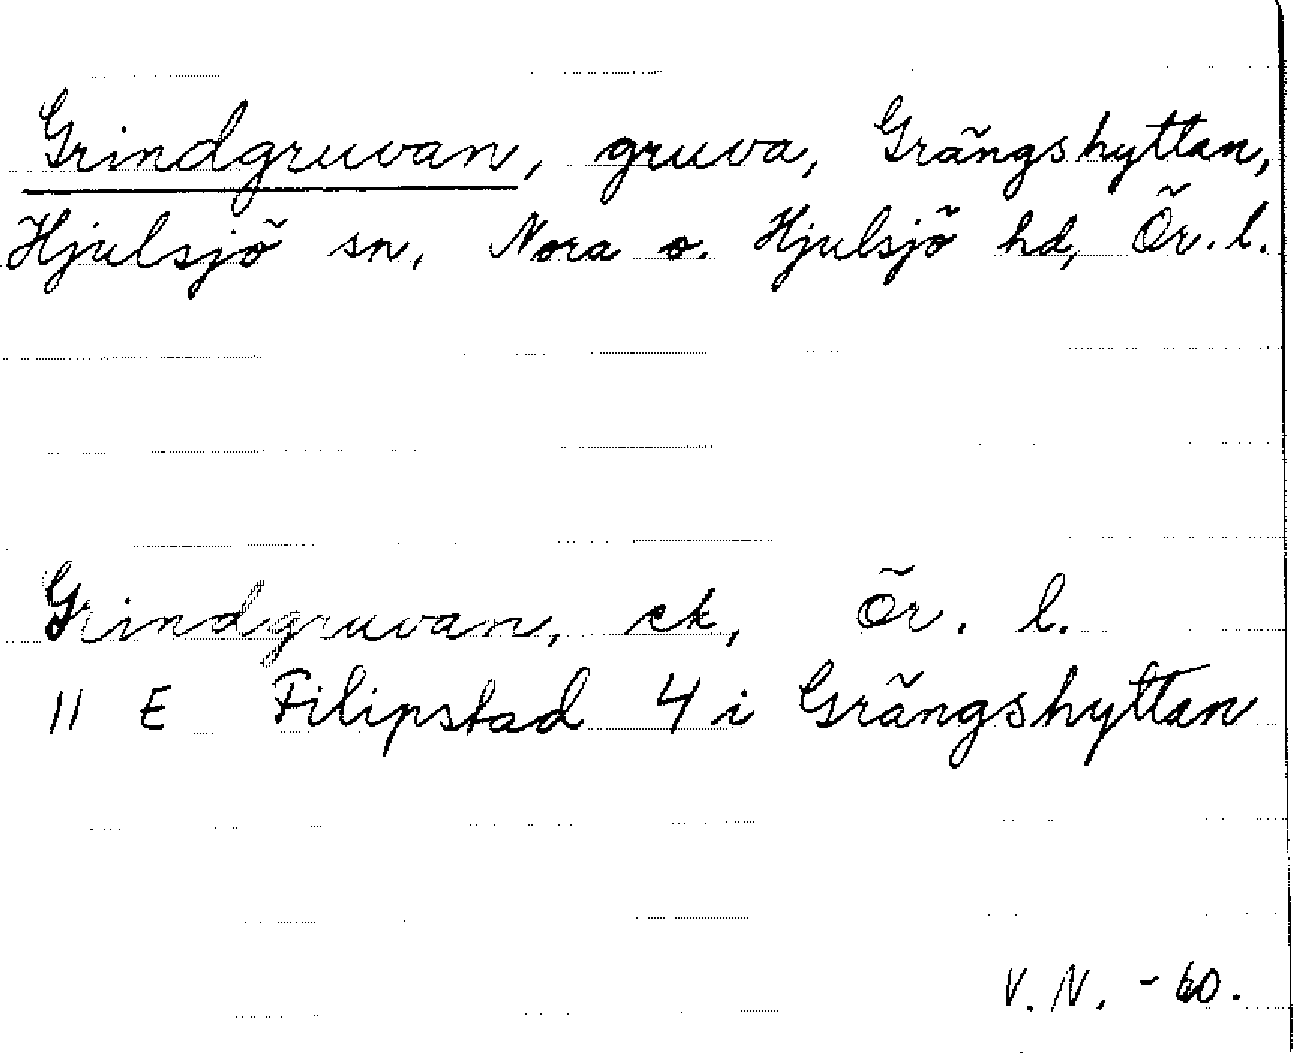 Grindgruvan, gruva, Grängshyttan,
Hjulsjö sn, Nora o. Hjulsjö hd, Ör. l.
Grindgruvan, ek, Ör. l.
11 E Filipstad 4 i Grängshyttan
V. N. -60.